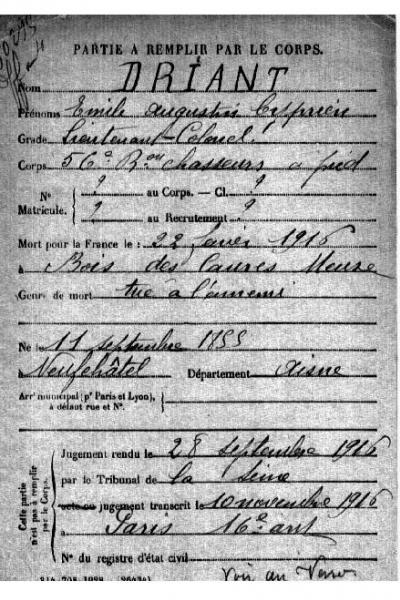 PARTIE A REMPLIR PAR LE CORPS.
Nom DRIANT
Prénoms Emile Augustin Cyprien
Grade Lieutenant-Colonel
Corps 56e Bon Chasseurs à pied
N° Matricule. { ? au Corps. — Cl. ?
? au Recrutement ?
Mort pour la France le : 22 1916
à Bois des Caures Meuse
Genre de mort tué à l'ennemi
Né le 11 septembre 1855
à Neufchâtel Département Aisne
Arrt municipal (pr Paris et Lyon),
à défaut rue et N°.
Cette partie n'est pas à remplir par le Corps.
Jugement rendu le 28 septembre 1916
par le Tribunal de la Seine
acte ou jugement transcrit le 10 novembre 1916
à Paris 16e arrt
N° du registre d'état civil
Voir au Verso